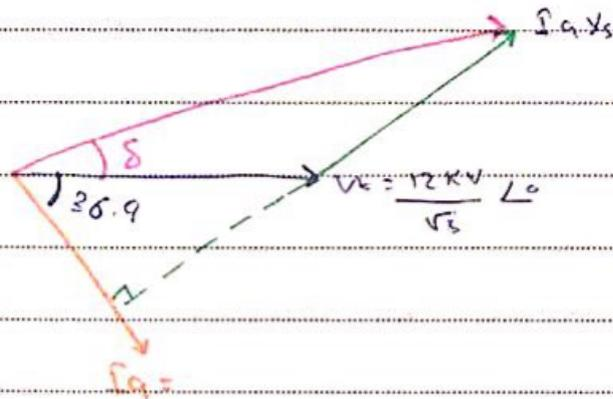 Ia Xs
δ
36.9
Vt = 12 KV / √3 ∠0
Ia =